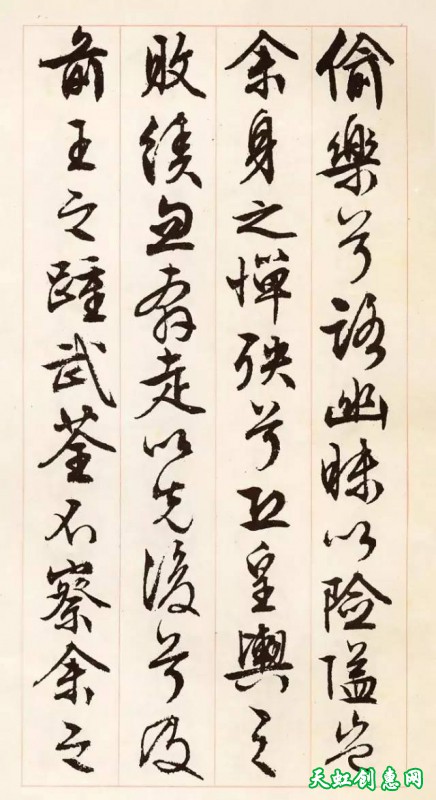 偷樂兮路幽昧以險隘豈
余身之憚殃兮恐皇輿之
敗績忽奔走以先後兮及
前王之踵武荃不察余之
天虹创惠网